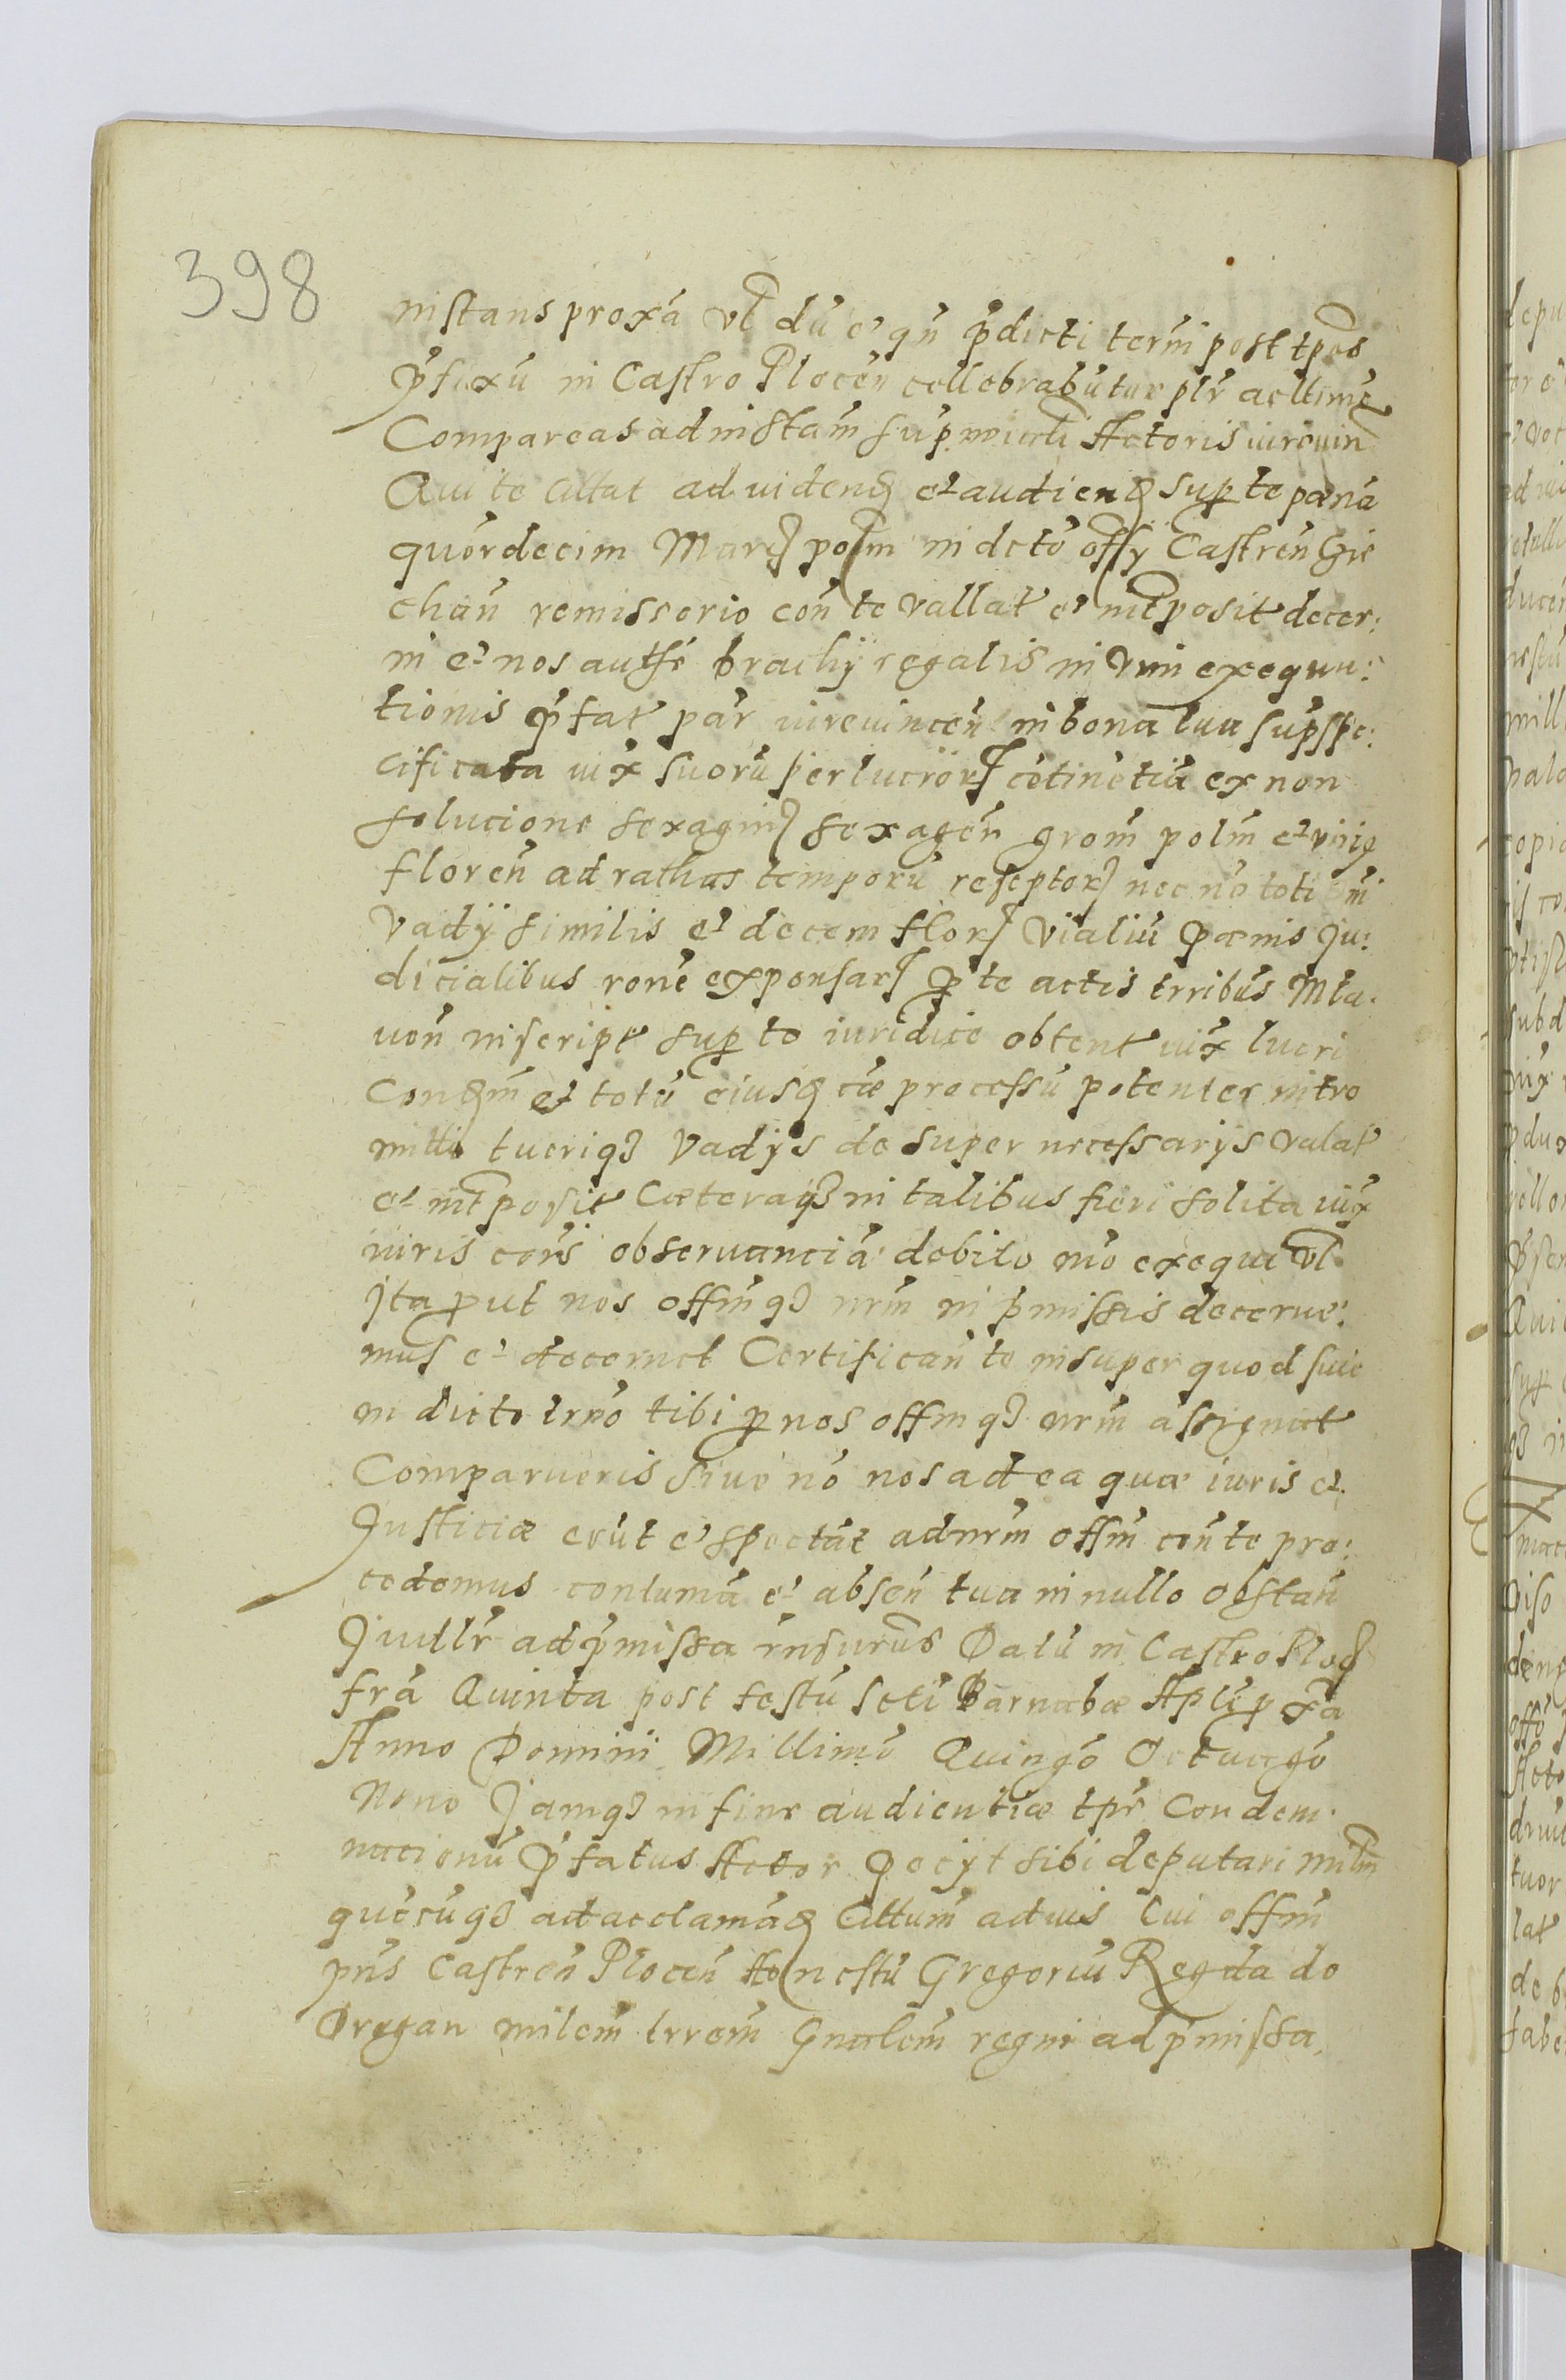 398
instans proxa vl du et qn pdicti termi post tpes
pfixu in Castro Plocen cellebrabutur plr ac ltime
Compareas ad instam supnoiati Actoris iurevin
Qui te citat ad videnq et audienq sup te pœna
quordecim Marcq polm in dcto offy Castren Cie
chan remissorio con te vallat et intposit decer:
ni et nos authe brachy regalis in vim exequu:
tionis pfat par iurevincen in bona tua supspe:
cificata iux suoru perlucror cotinetia ex non
solucione sexaginq sexagen grom polm et
floren ad rathas temporu receptorq nec no toti m
vadÿ similis et decem flor vialiu pœnis Ju:
dicialibus rone expensar p te actis trribus Mla:
uen inscript sup te iuridice obtent iux lucri
Conqm et totu eiusq cœ processu potenter intro
mitti tueriqз vadÿs de super necessarÿs valat
et intposit Cœteraqз in talibus fieri solita iux
iuris cois observancia debito mo exequi vl
Jta put nos offmqз nrm in pmissis decerne:
mus et decernet Certifican te insuper quod siue
in dicto trno tibi p nos offmqз nrm assignat
Comparueris siue no nos ad ea quœ iuris et
Justiciœ erut et spectat ad nrm offm con te pro:
cedemus contuma et absen tua in nullo obstan
Judlr ad pmissa rnsurus Datu in Castro Plocq
fra Quinta post festu scti Barnabœ Apli pxa
Anno Domini Millimo Quingo Octuago
Nono Jamqз in fine audientiœ tpr Condem:
nacionu pfatus Actor Pecÿt sibi deputari milm
quecuqз ad acclamaq Cittum aduis Cui offm
pns Castren Plocen Honestu Gregoriu Regula de
Dregan milem trrem Gnalem regni ad pmissa